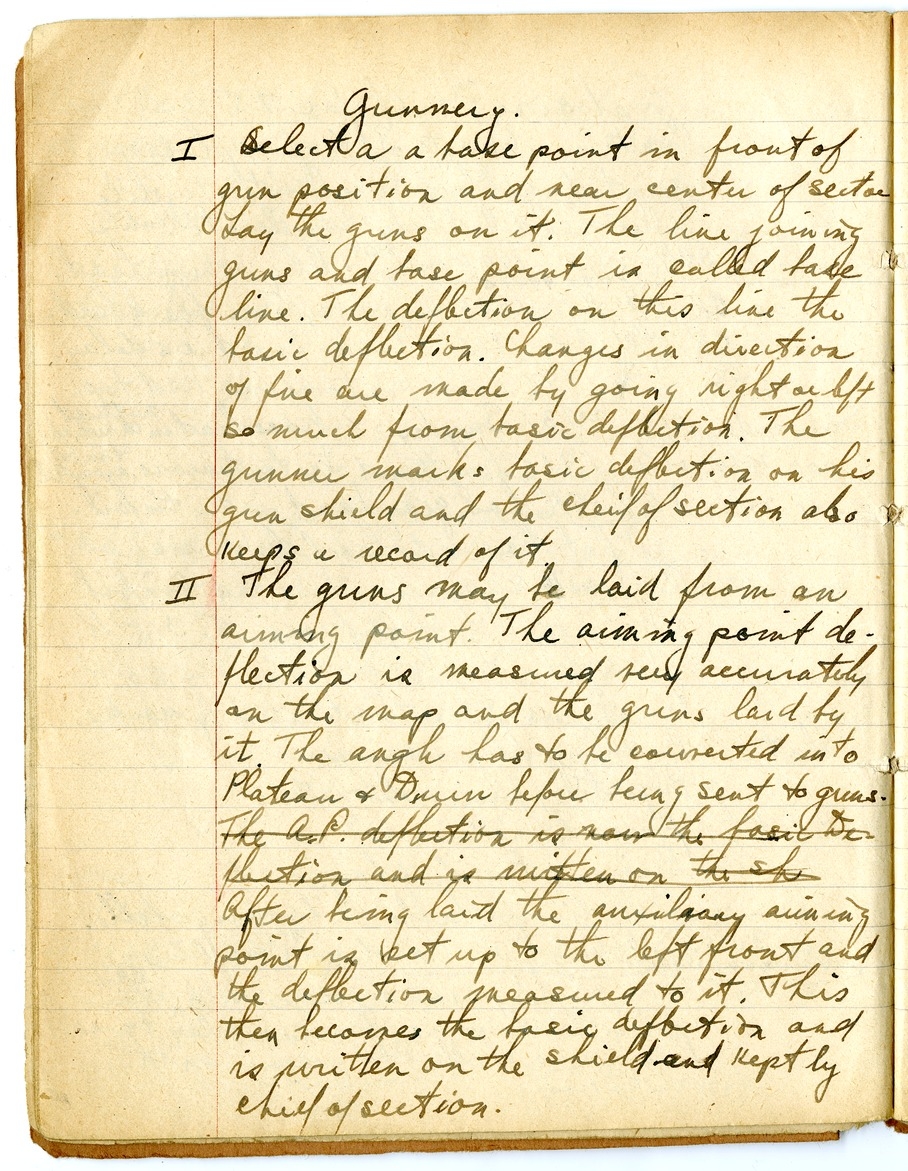 Gunnery.
I Select a a base point in front of
gun position and near center of sector
Lay the guns on it. The line joining
guns and base point is called base
line. The deflection on this line the
basic deflection. Changes in direction
of fire are made by going right or left
so much from basic deflection. The
gunner marks basic deflection on his
gun shield and the cheif of section also
keeps a record of it.
II The guns may be laid from an
aiming point. The aiming point de-
flection is measured very accurately
on the map and the guns laid by
it. The angle has to be converted into
Plateau & Drum before being sent to guns.
The A.P. deflection is now the basic De-
flection and is written on the sh
After being laid the auxiliary aiming
point is set up to the left front and
the deflection measured to it. This
then becomes the basic deflection and
is written on the shield and kept by
chief of section.